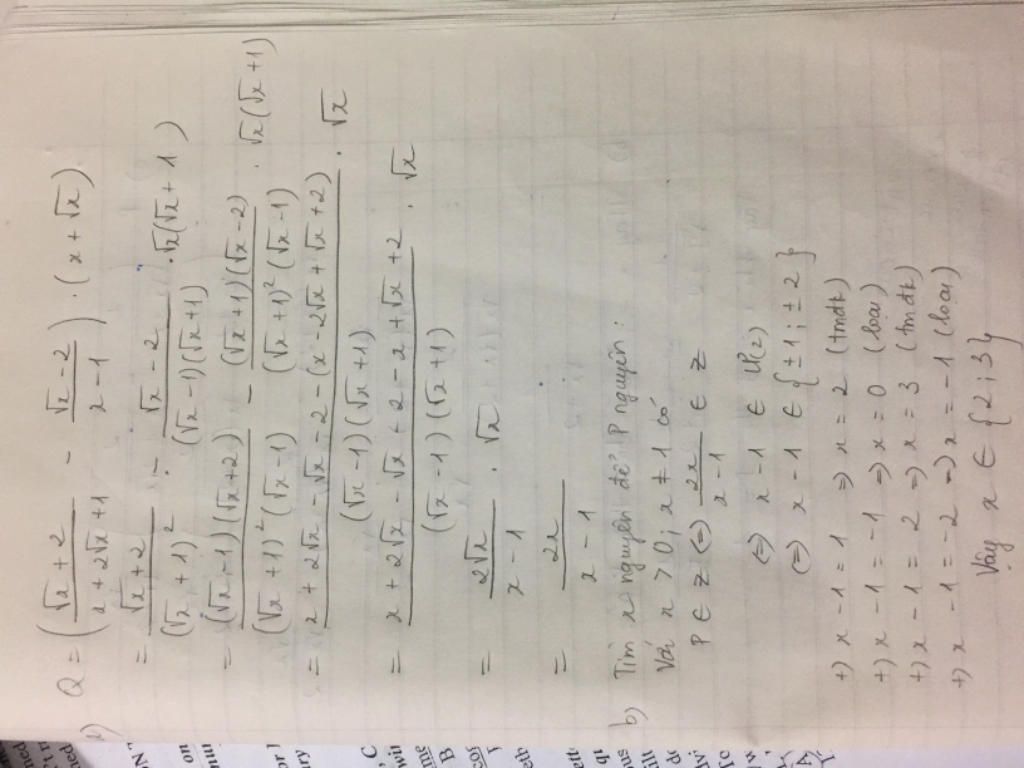 a) Q = ( (√x + 2)/(x + 2√x + 1) - (√x - 2)/(x - 1) ) . (x + √x)
= (√x + 2)/(√x + 1)² - (√x - 2)/((√x - 1)(√x + 1)) . √x(√x + 1)
= ((√x - 1)(√x + 2))/((√x + 1)²(√x - 1)) - ((√x + 1)(√x - 2))/((√x + 1)²(√x - 1)) . √x(√x + 1)
= (x + 2√x - √x - 2 - (x - 2√x + √x + 2))/((√x - 1)(√x + 1)) . √x
= (x + 2√x - √x + 2 - x + √x + 2)/((√x - 1)(√x + 1)) . √x
= 2√x/(x - 1) . √x
= 2x/(x - 1)
b) Tìm x nguyên để P nguyên :
Với x > 0 ; x ≠ 1 có
P ∈ Z ⇔ 2x/(x - 1) ∈ Z
⇔ x - 1 ∈ Ư(2)
⇔ x - 1 ∈ { ±1 ; ± 2 }
+) x - 1 = 1 ⇒ x = 2 (tmđk)
+) x - 1 = -1 ⇒ x = 0 (loại)
+) x - 1 = 2 ⇒ x = 3 (tmđk)
+) x - 1 = -2 ⇒ x = -1 (loại)
Vậy x ∈ {2 ; 3}